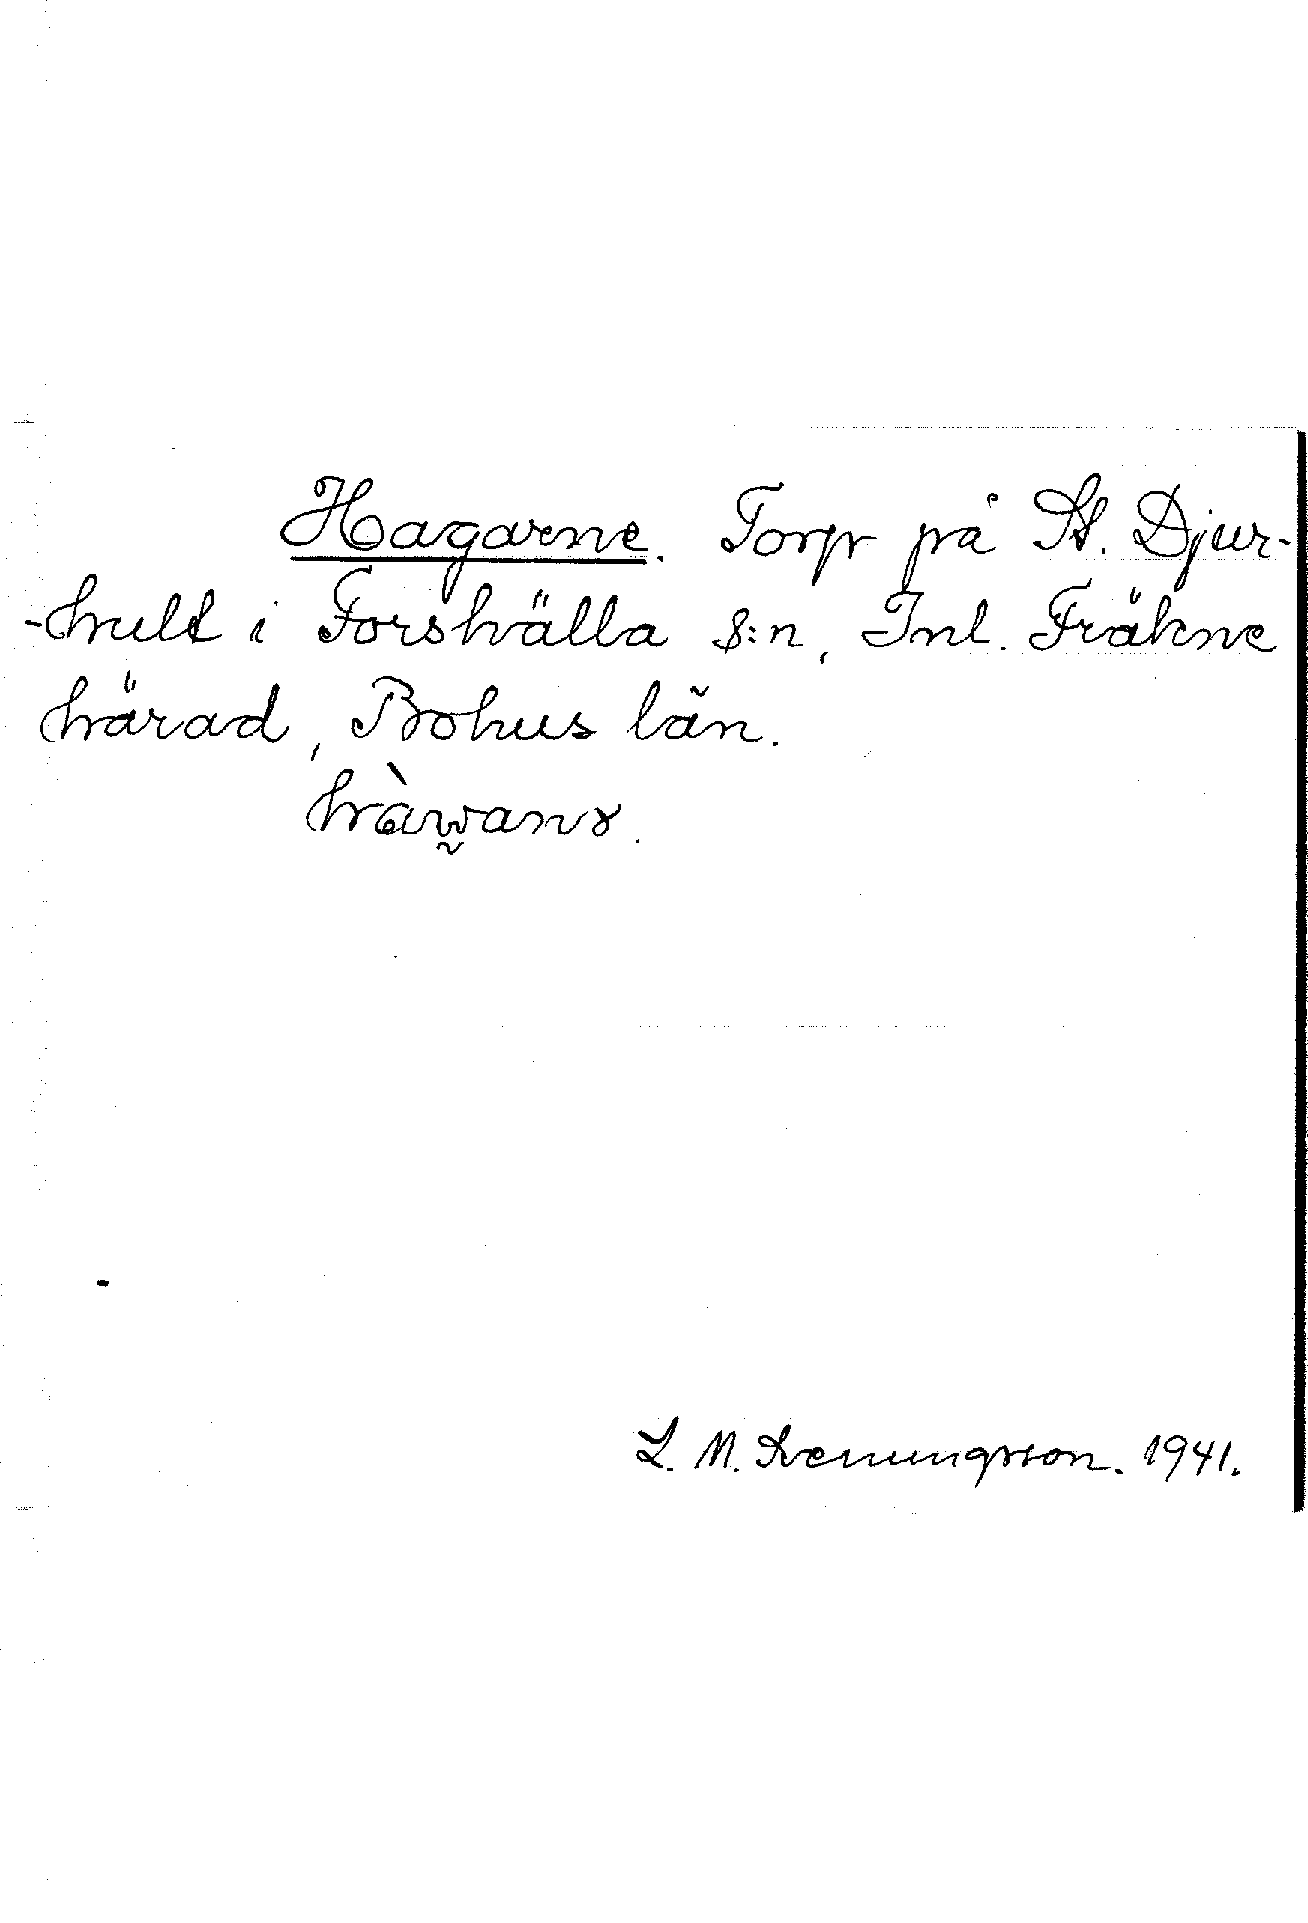 Hagarne. Torp på St. Djur-
-hult i Forshälla s:n, Inl. Fräkne
härad, Bohus län.
L. M. Svenungsson. 1941.